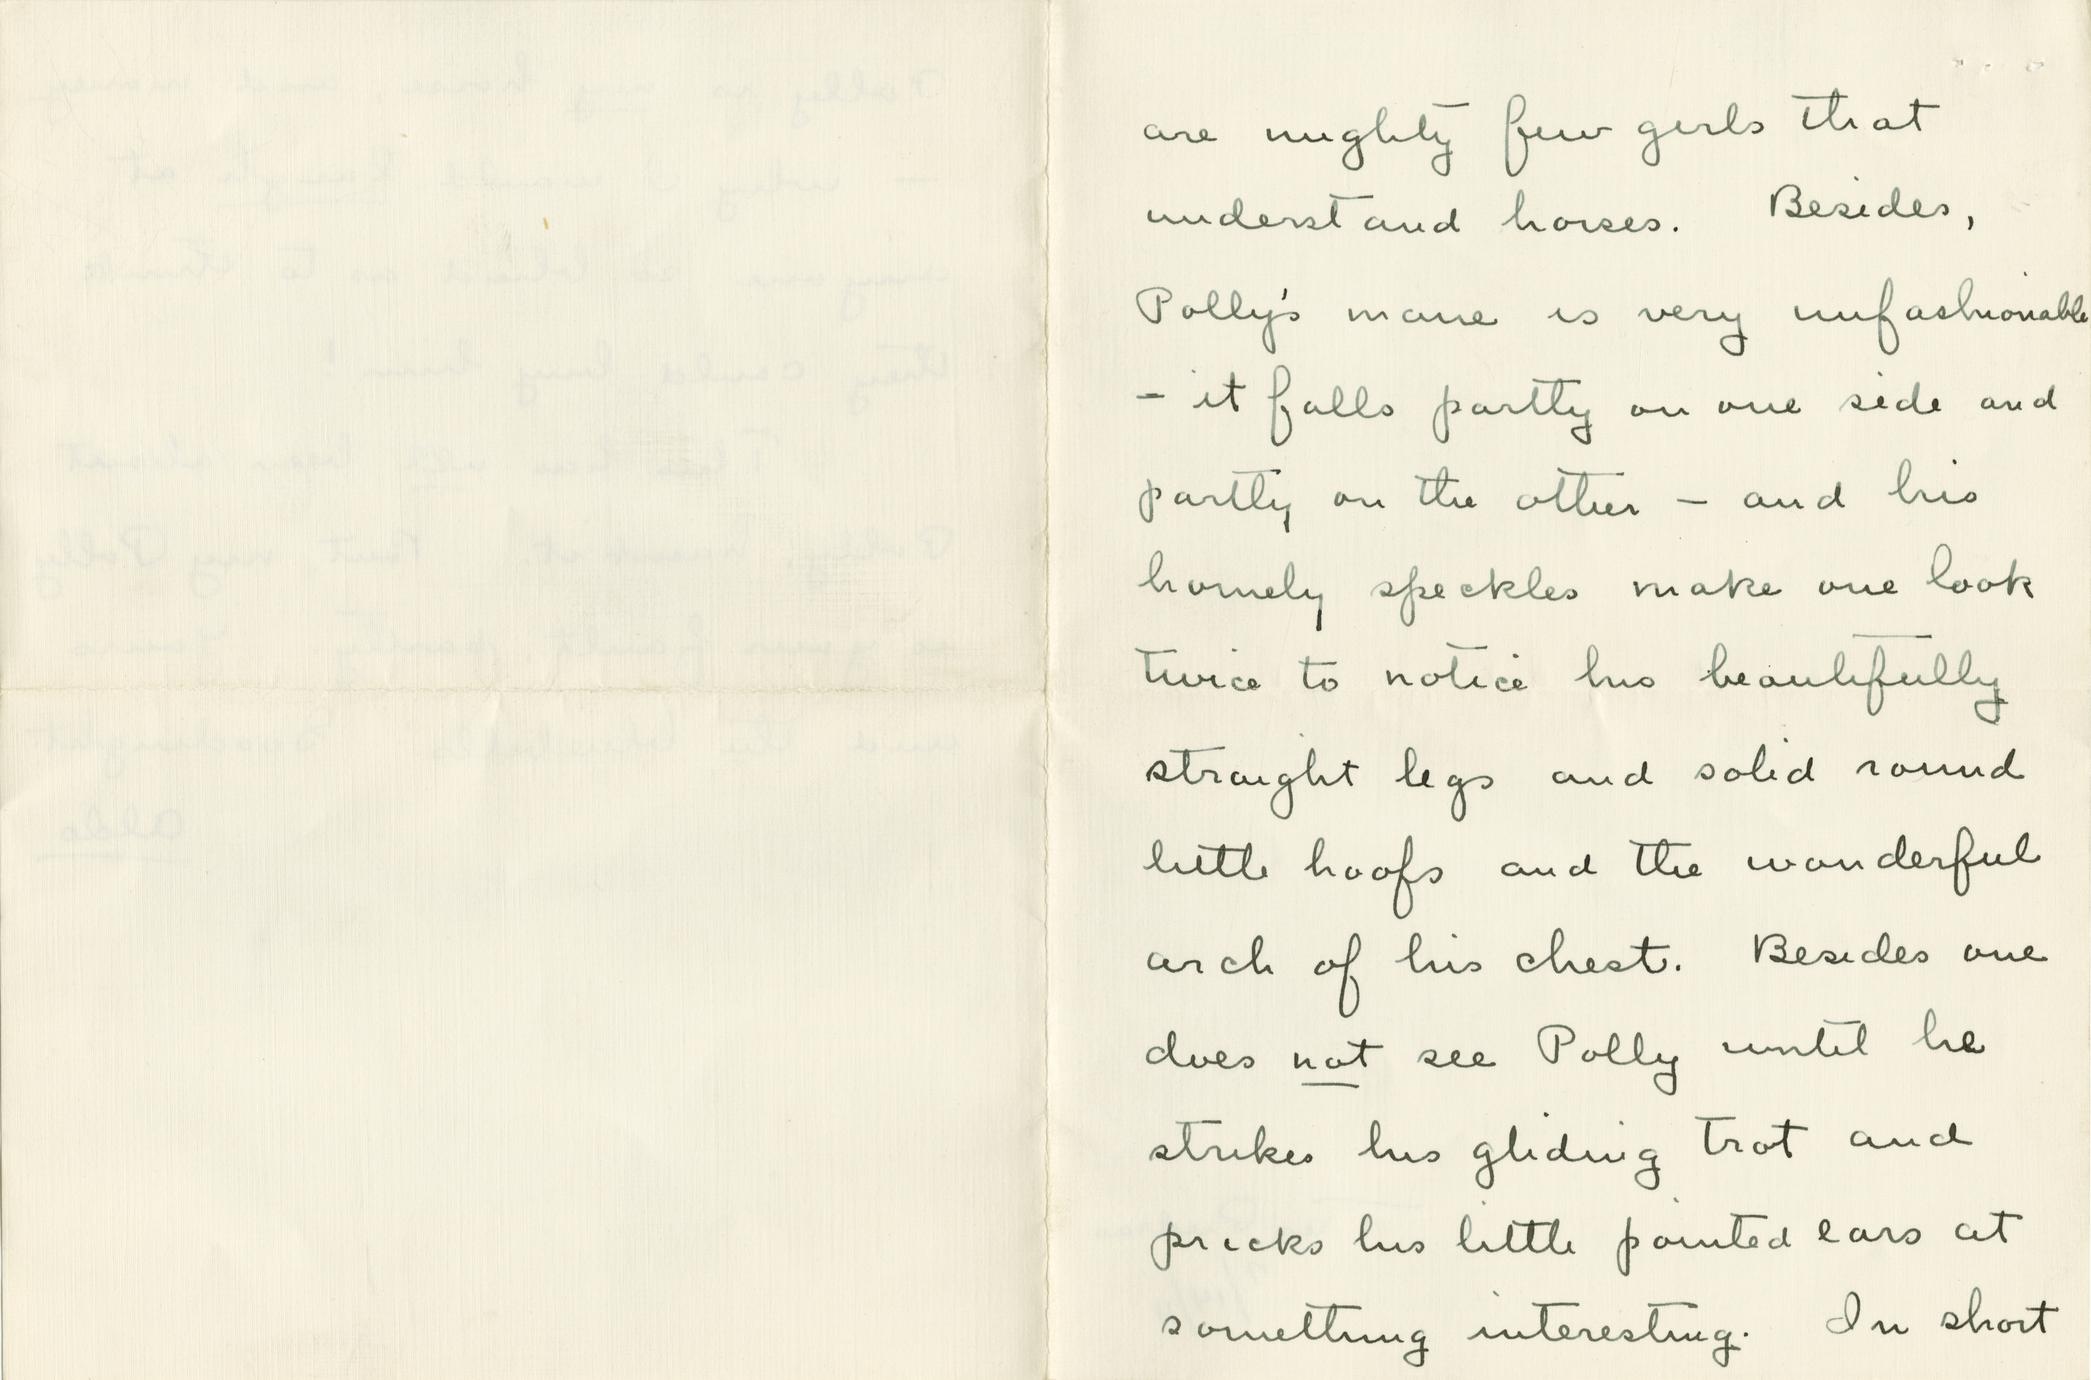 are mighty few girls that
understand horses. Besides,
Polly's mane is very unfashionable
- it falls partly on one side and
partly on the other - and his
homely speckles make one look
twice to notice his beautifully
straight legs and solid round
little hoofs and the wonderful
arch of his chest. Besides one
does not see Polly until he
strikes his gliding trot and
pricks his little pointed ears at
something interesting. In short